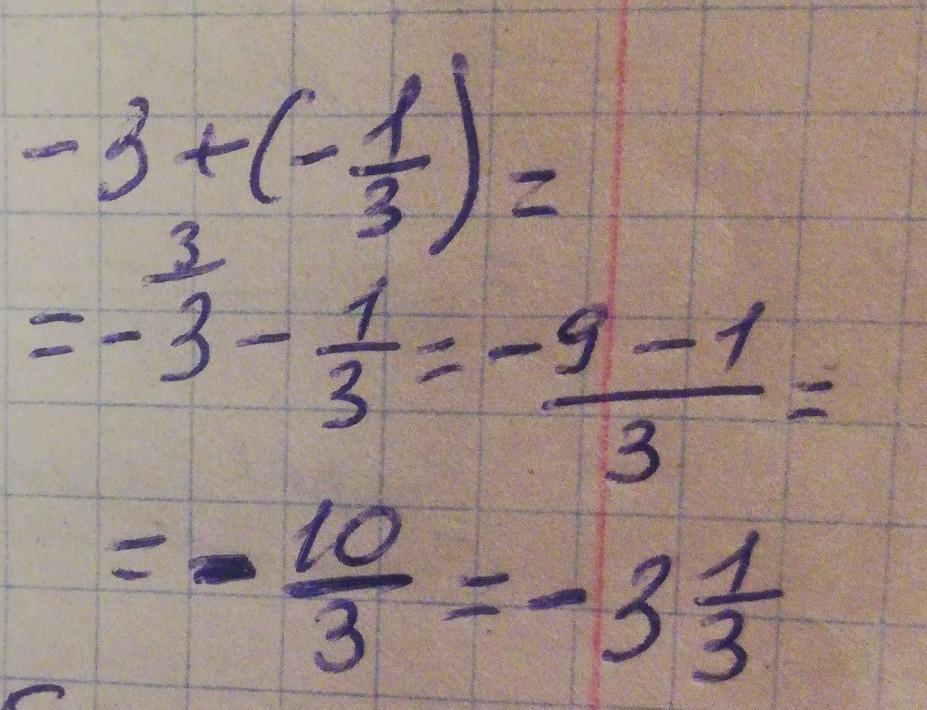 -3 + (-1/3) =
= -3 3/ - 1/3 = -9 - 1/3 =
= -10/3 = -3 1/3